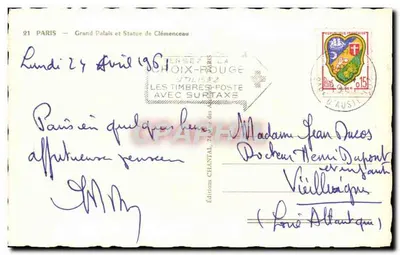 21 PARIS - Grand Palais et Statue de Clémenceau
Lundi 24 Avril 1961
CROIX-ROUGE
UTILISEZ
LES TIMBRES-POSTE
AVEC SURTAXE
0,15
Paris en quelques
affectueuse pensée
Editions CHANTAL,
Madame Jean Ducos
Docteur Henri Dupont
et enfants
Vieillevigne
(Loire Atlantique)